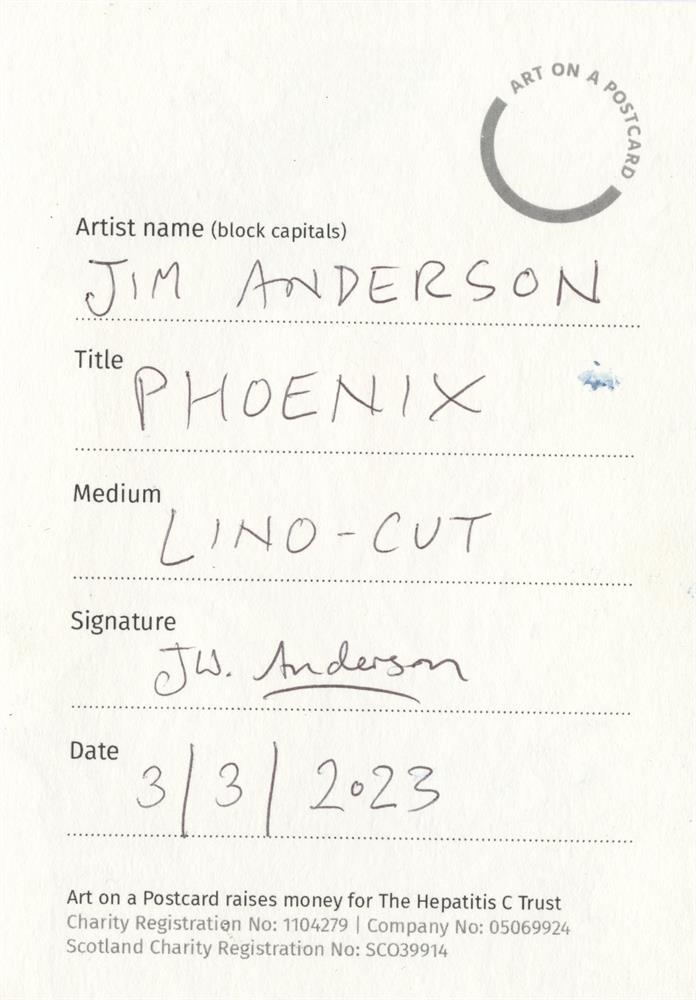 ART ON A POSTCARD
Artist name (block capitals)
JIM ANDERSON
Title
PHOENIX
Medium
LINO-CUT
Signature
JW. Anderson
Date
3/3/2023
Art on a Postcard raises money for The Hepatitis C Trust
Charity Registration No: 1104279 | Company No: 05069924
Scotland Charity Registration No: SCO39914